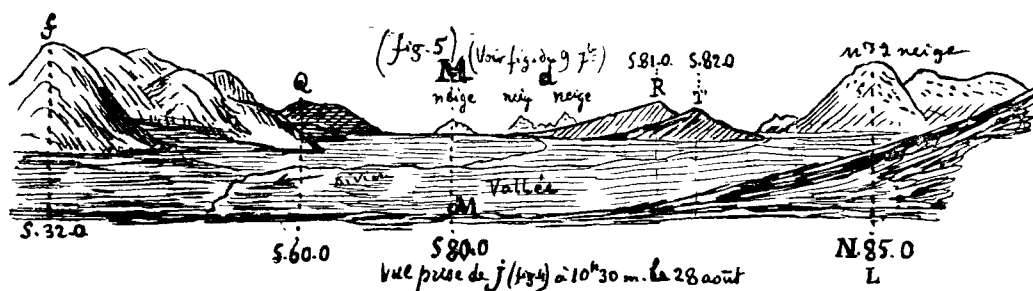 f
(fig. 5) (Voir fig. du 9 7bre)
S.81.O. S.82.O
n°72 neige
Q M d R T
neige neig neige
rivière
Vallée
M
S.32.O
S.60.O S.80.O N.85.O
L
Vue prise de j (fig. 4) à 10h 30 m. le 28 août